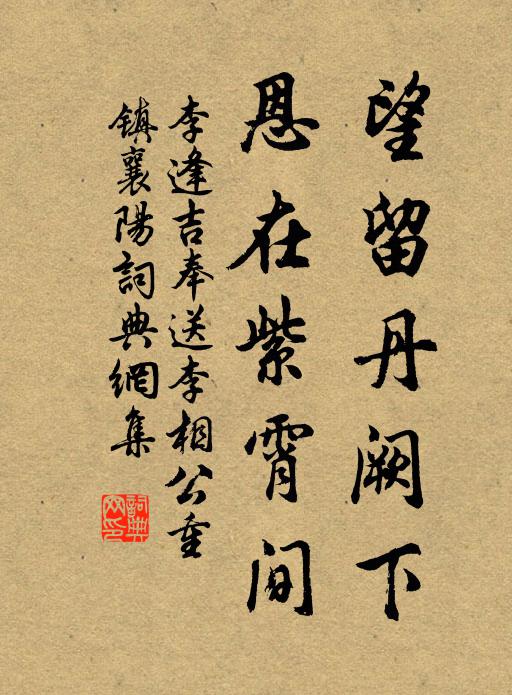 望留丹阙下
恩在紫霄間
李逢吉奉送李相公重
鎮襄陽詞典網集
詞典网印